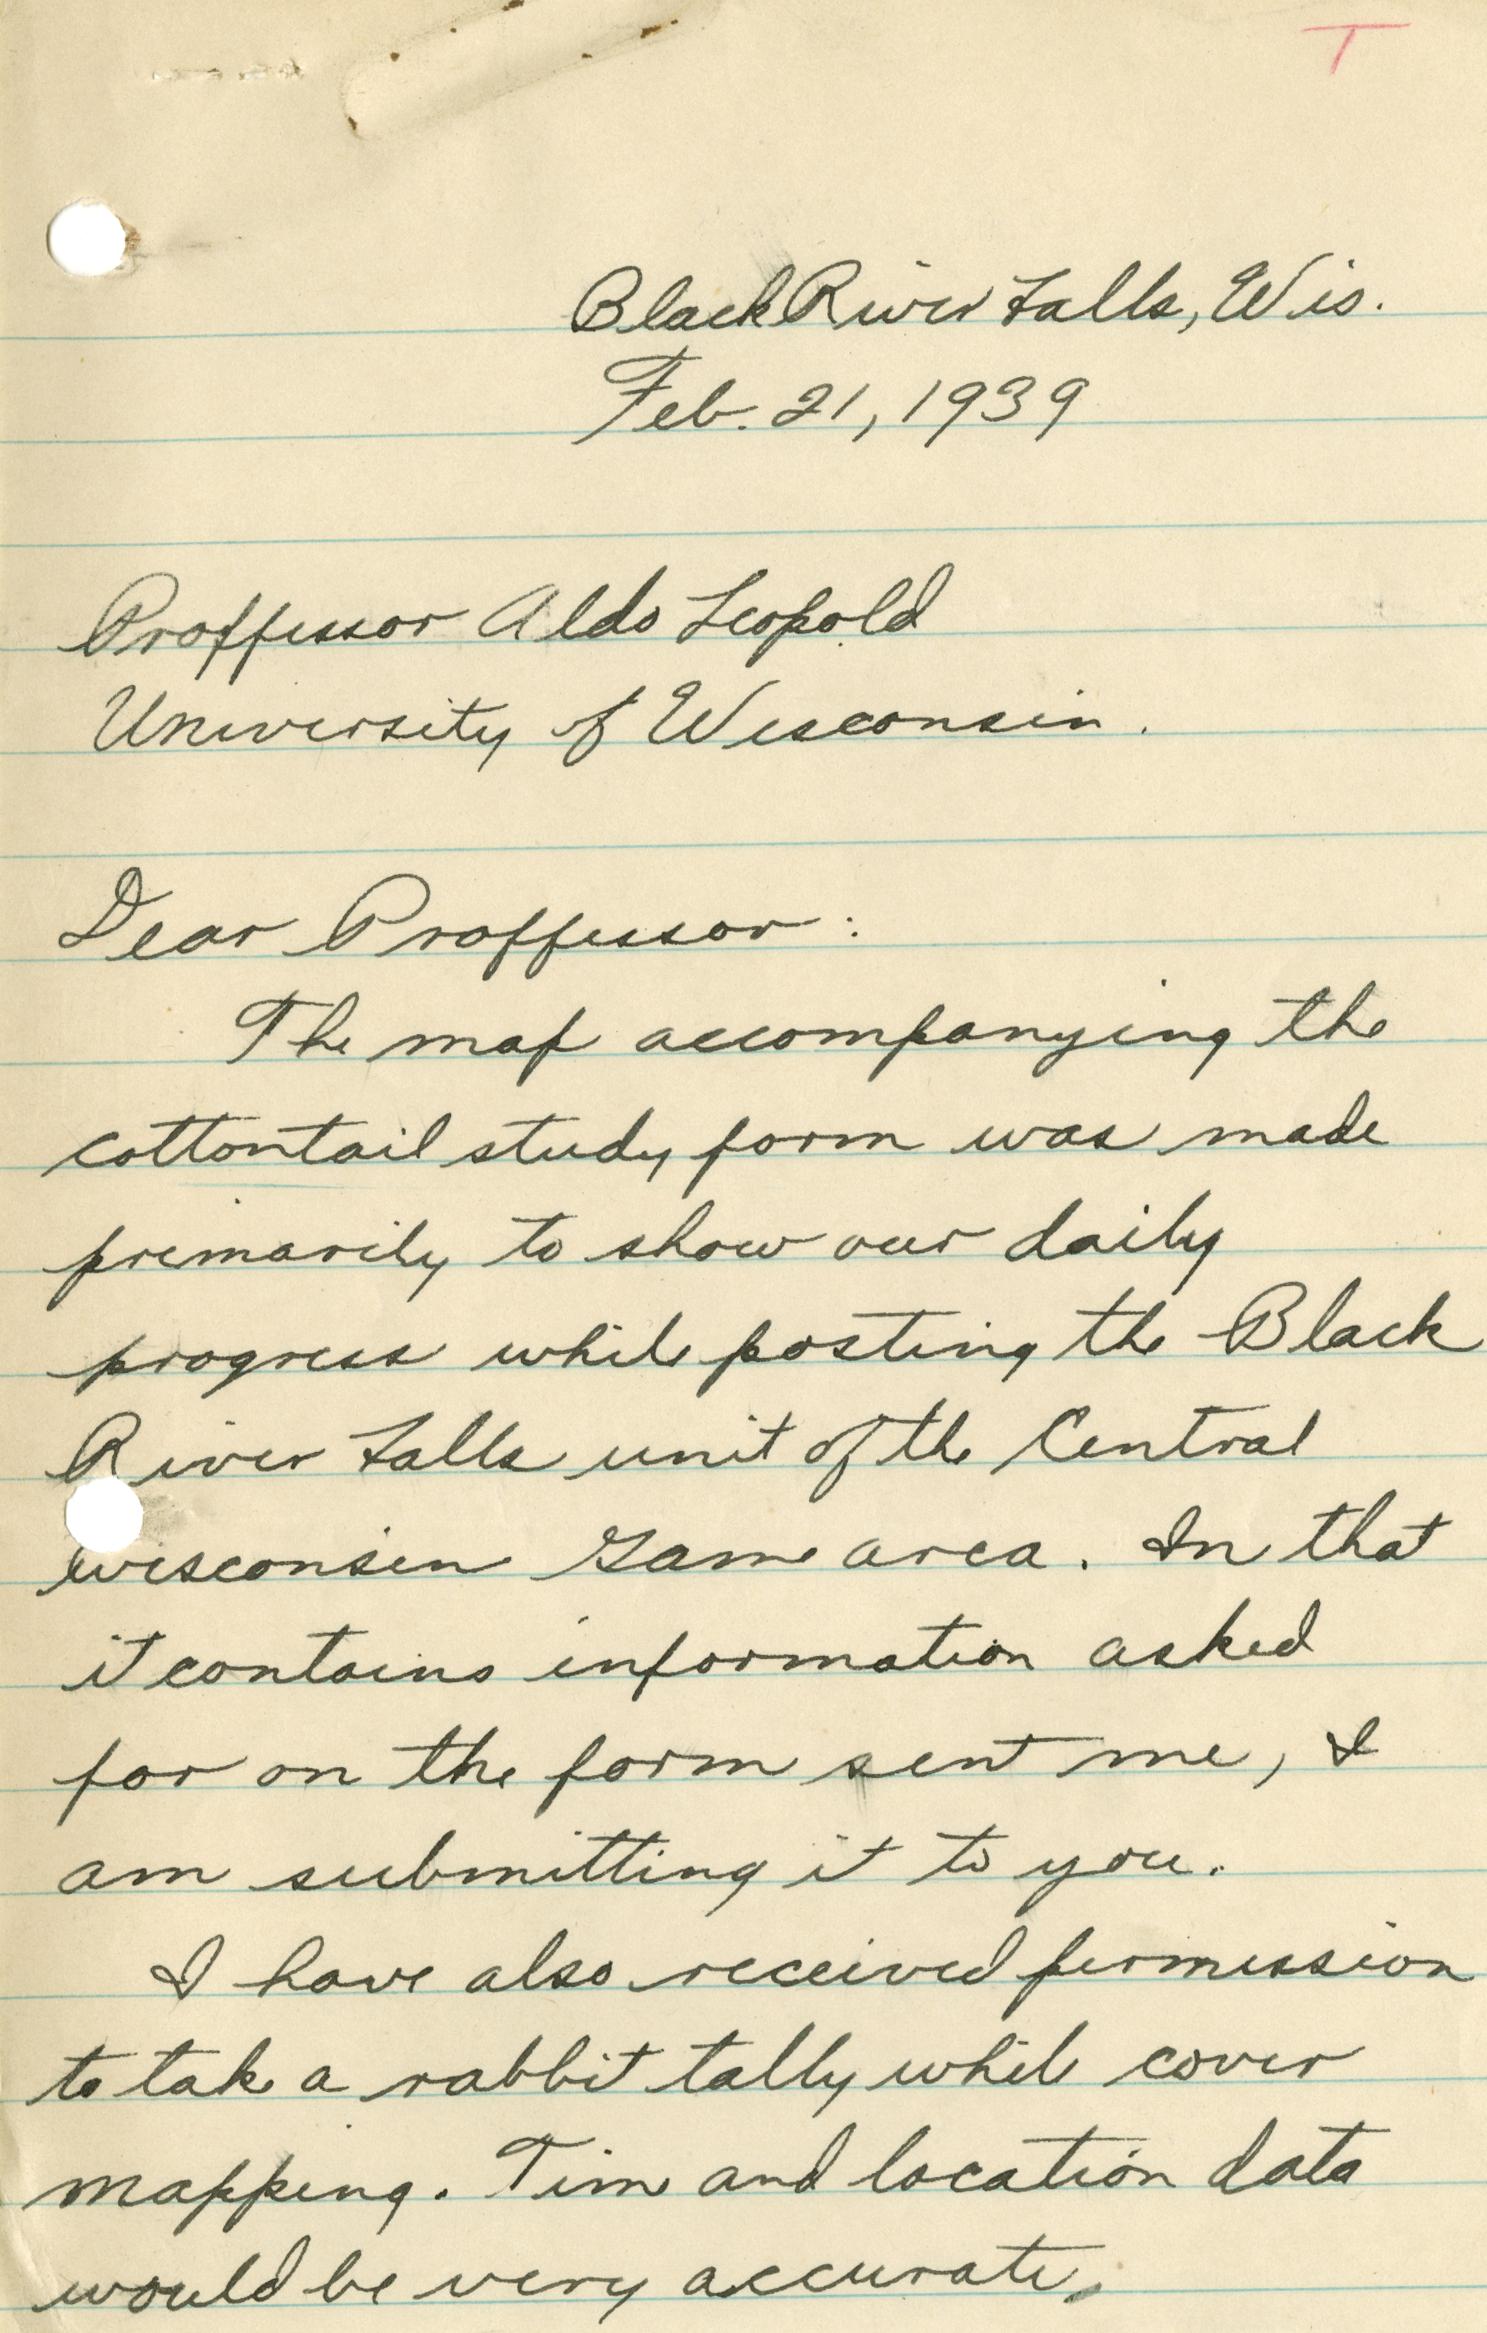 T
Black River Falls, Wis.
Feb. 21, 1939
Proffessor Aldo Leopold
University of Wisconsin.
Dear Proffessor:
The map accompanying the
cottontail study form was made
primarily to show our daily
progress while posting the Black
River Falls unit of the Central
Wisconsin Game area. In that
it contains information asked
for on the form sent me, I
am submitting it to you.
I have also received permission
to take a rabbit tally while cover
mapping. Time and location data
would be very accurate.